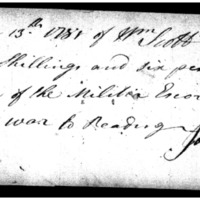 13th 1781 of Wm Scott
Shillings and six pen
of the Militia Escor
war to Reading Jo